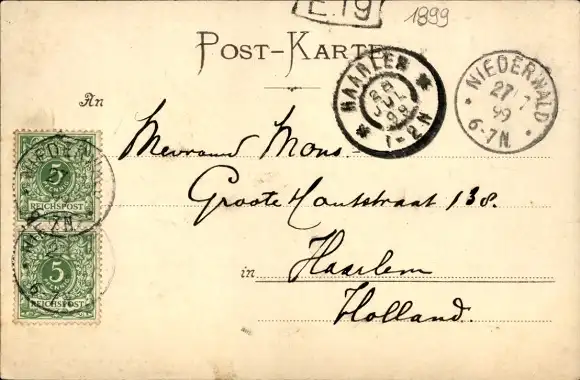 E.19
1899
POST-KARTE
HAARLEM
28
JUL
99
1-2N
NIEDERWALD
27 7
99
6-7N.
An
Mevrouw Mons.
Groote Houtstraat 138.
in Haarlem
Holland.
NIEDERW
5
PFENNIG
REICHSPOST
5
PFENNIG
REICHSPOST